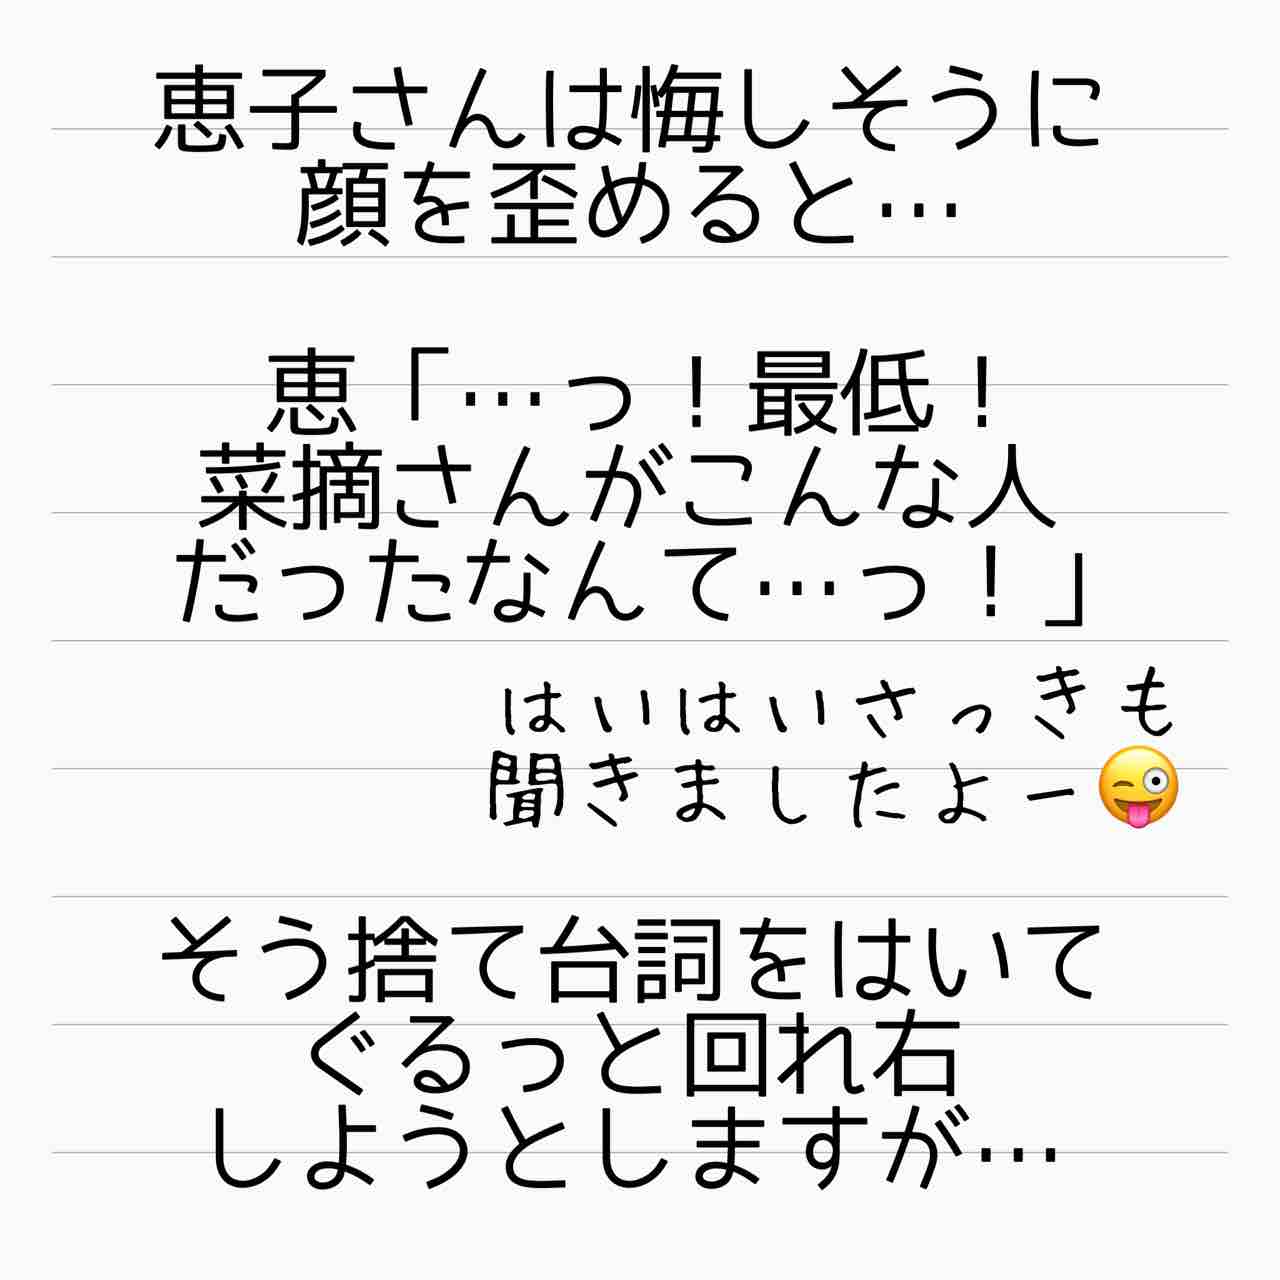 恵子さんは悔しそうに
顔を歪めると…
恵「…っ！最低！
菜摘さんがこんな人
だったなんて…っ！」
はいはいさっきも
聞きましたよー😜
そう捨て台詞をはいて
ぐるっと回れ右
しようとしますが…